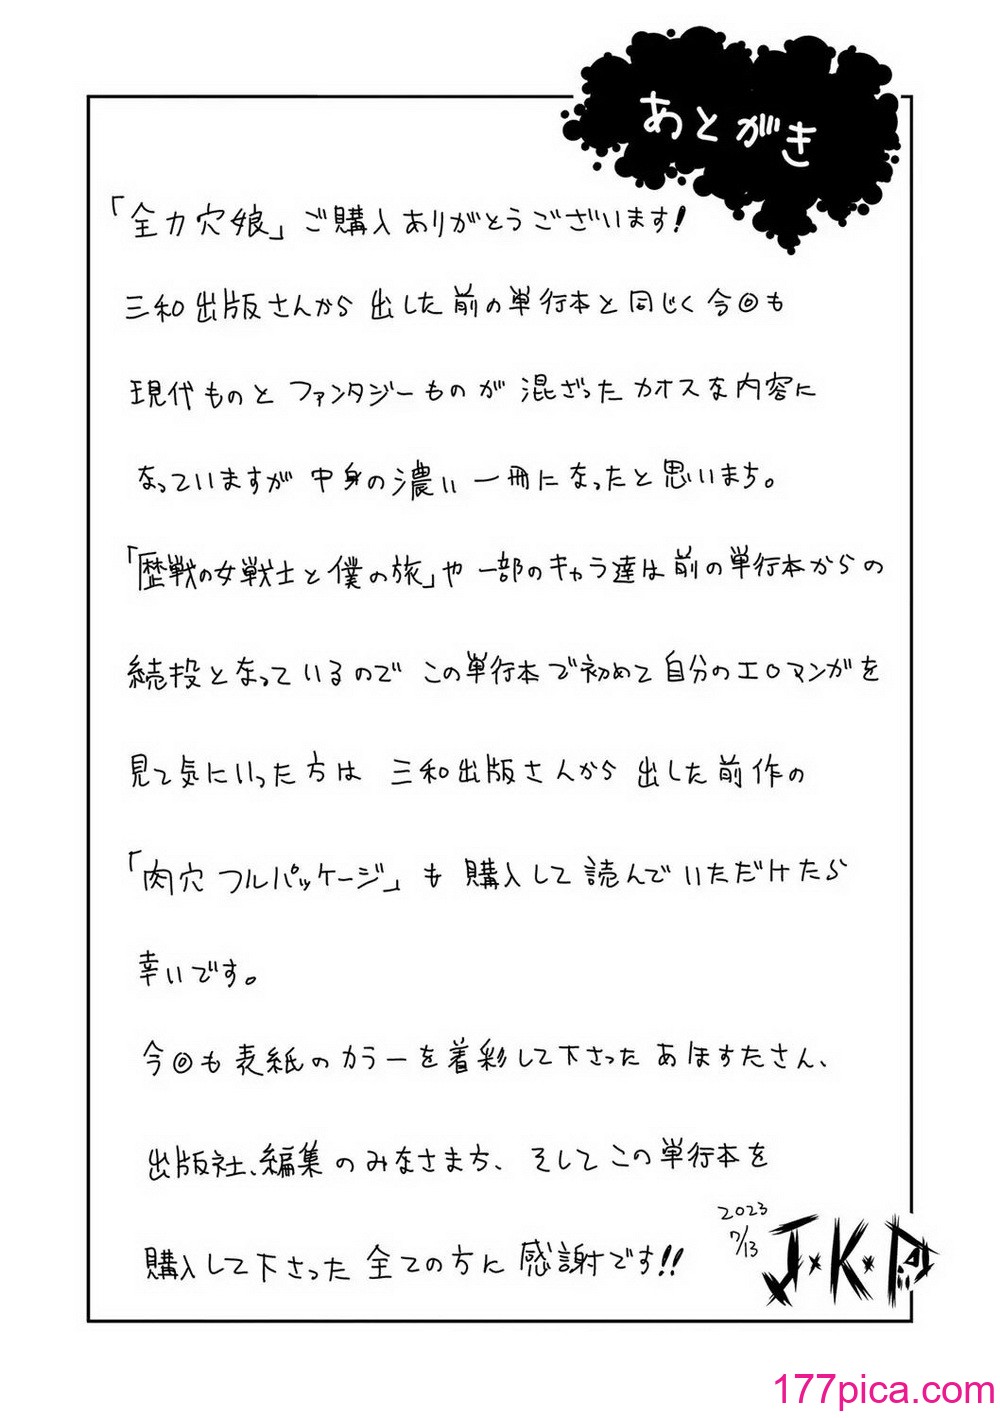 あとがき
「全力穴娘」ご購入ありがとうございます！
三和出版さんから出した前の単行本と同じく今回も
現代ものとファンタジーものが混ざったカオスな内容に
なっていますが中身の濃い一冊になったと思いまち。
「歴戦の女戦士と僕の旅」や一部のキャラ達は前の単行本からの
続投となっているのでこの単行本で初めて自分のエロマンガを
見て気にいった方は三和出版さんから出した前作の
「肉穴フルパッケージ」も購入して読んでいただけたら
幸いです。
今回も表紙のカラーを着彩して下さったあほすたさん、
出版社、編集のみなさまち、そしてこの単行本を
購入して下さった全ての方に感謝です!!
2023
7/13
J・K・P
177pica.com